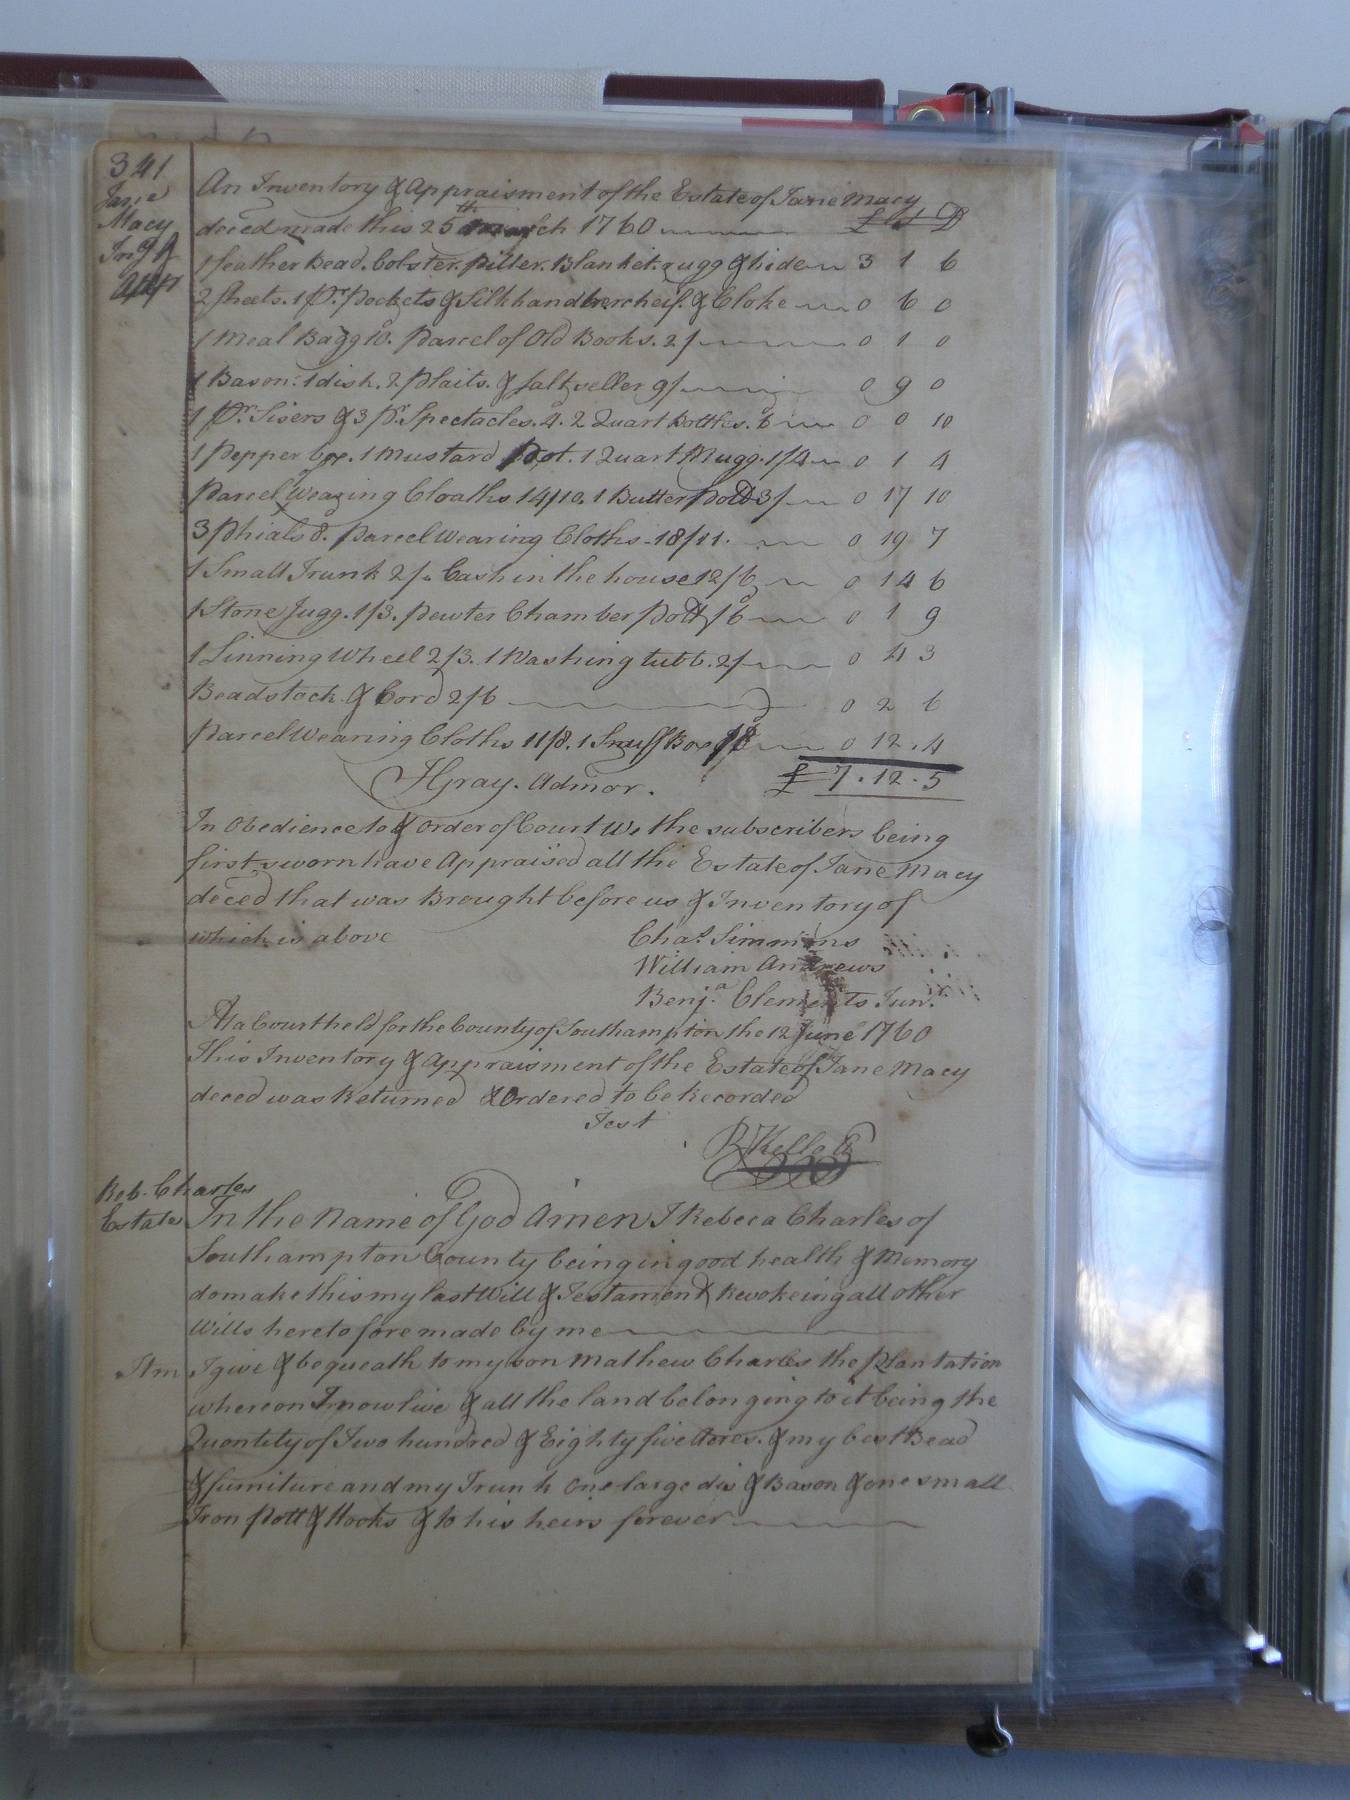 341
Jane
Macy
Inv &
App
An Inventory & Appraisment of the Estate of Jane Macy
deced made this 25th march 1760 £ S D
1 feather Bead. bolster. piller. Blanket. rugg & hide 3 1 6
2 Sheets. 1 Pr. Pockets & Silk handkercheif. & Cloke 0 6 0
1 Meal Bagg 10. Parcel of Old Books. 2/ 0 1 0
1 Bason. 1 dish. 2 Plaits. & salt seller 9/ 0 9 0
1 Pr. Sisers & 3 Pr. Spectacles. 4. 2 Quart Bottles. 6 0 0 10
1 Pepper box. 1 Mustard Pot. 1 Quart Mugg. 1/4 0 1 4
Parcel Wearing Cloaths 14/10. 1 Butter Pott 3/ 0 17 10
3 Phials 8. Parcel Wearing Cloths 18/11. 0 19 7
1 Small Trunk 2/. Cash in the house 12/6 0 14 6
1 Stone Jugg. 1/3. Pewter Chamber Pott /6 0 1 9
1 Linning Wheel 2/3. 1 Washing tubb. 2/ 0 4 3
Beadstock & Cord 2/6 0 2 6
Parcel Wearing Cloths 11/8. 1 Snuff Box /8 0 12 . 4
J Gray. Admor. £ 7 . 12 . 5
In Obedience to & order of Court We the subscribers being
first sworn have Appraised all the Estate of Jane Macy
deced that was Brought before us & Inventory of
which is above
Chas. Simmons
William Andrews
Benja. Clements Junr.
At a Court held for the County of Southampton the 12 June 1760
This Inventory & Appraisment of the Estate of Jane Macy
deced was Returned & Ordered to be Recorded
Test
R Kello
Reb. Charles
Estate
In the Name of God Amen I Rebeca Charles of
Southampton County being in good health & Memory
do make this my last Will & Testament Revokeing all other
Wills heretofore made by me
Itm I give & bequeath to my son Mathew Charles the Plantation
whereon I now live & all the land belonging to it being the
Quontity of Two hundred & Eighty five Acres. & my best Bead
& furniture and my Trunk one large dis & Bason & one small
Iron Pott & Hooks & to his heirs forever